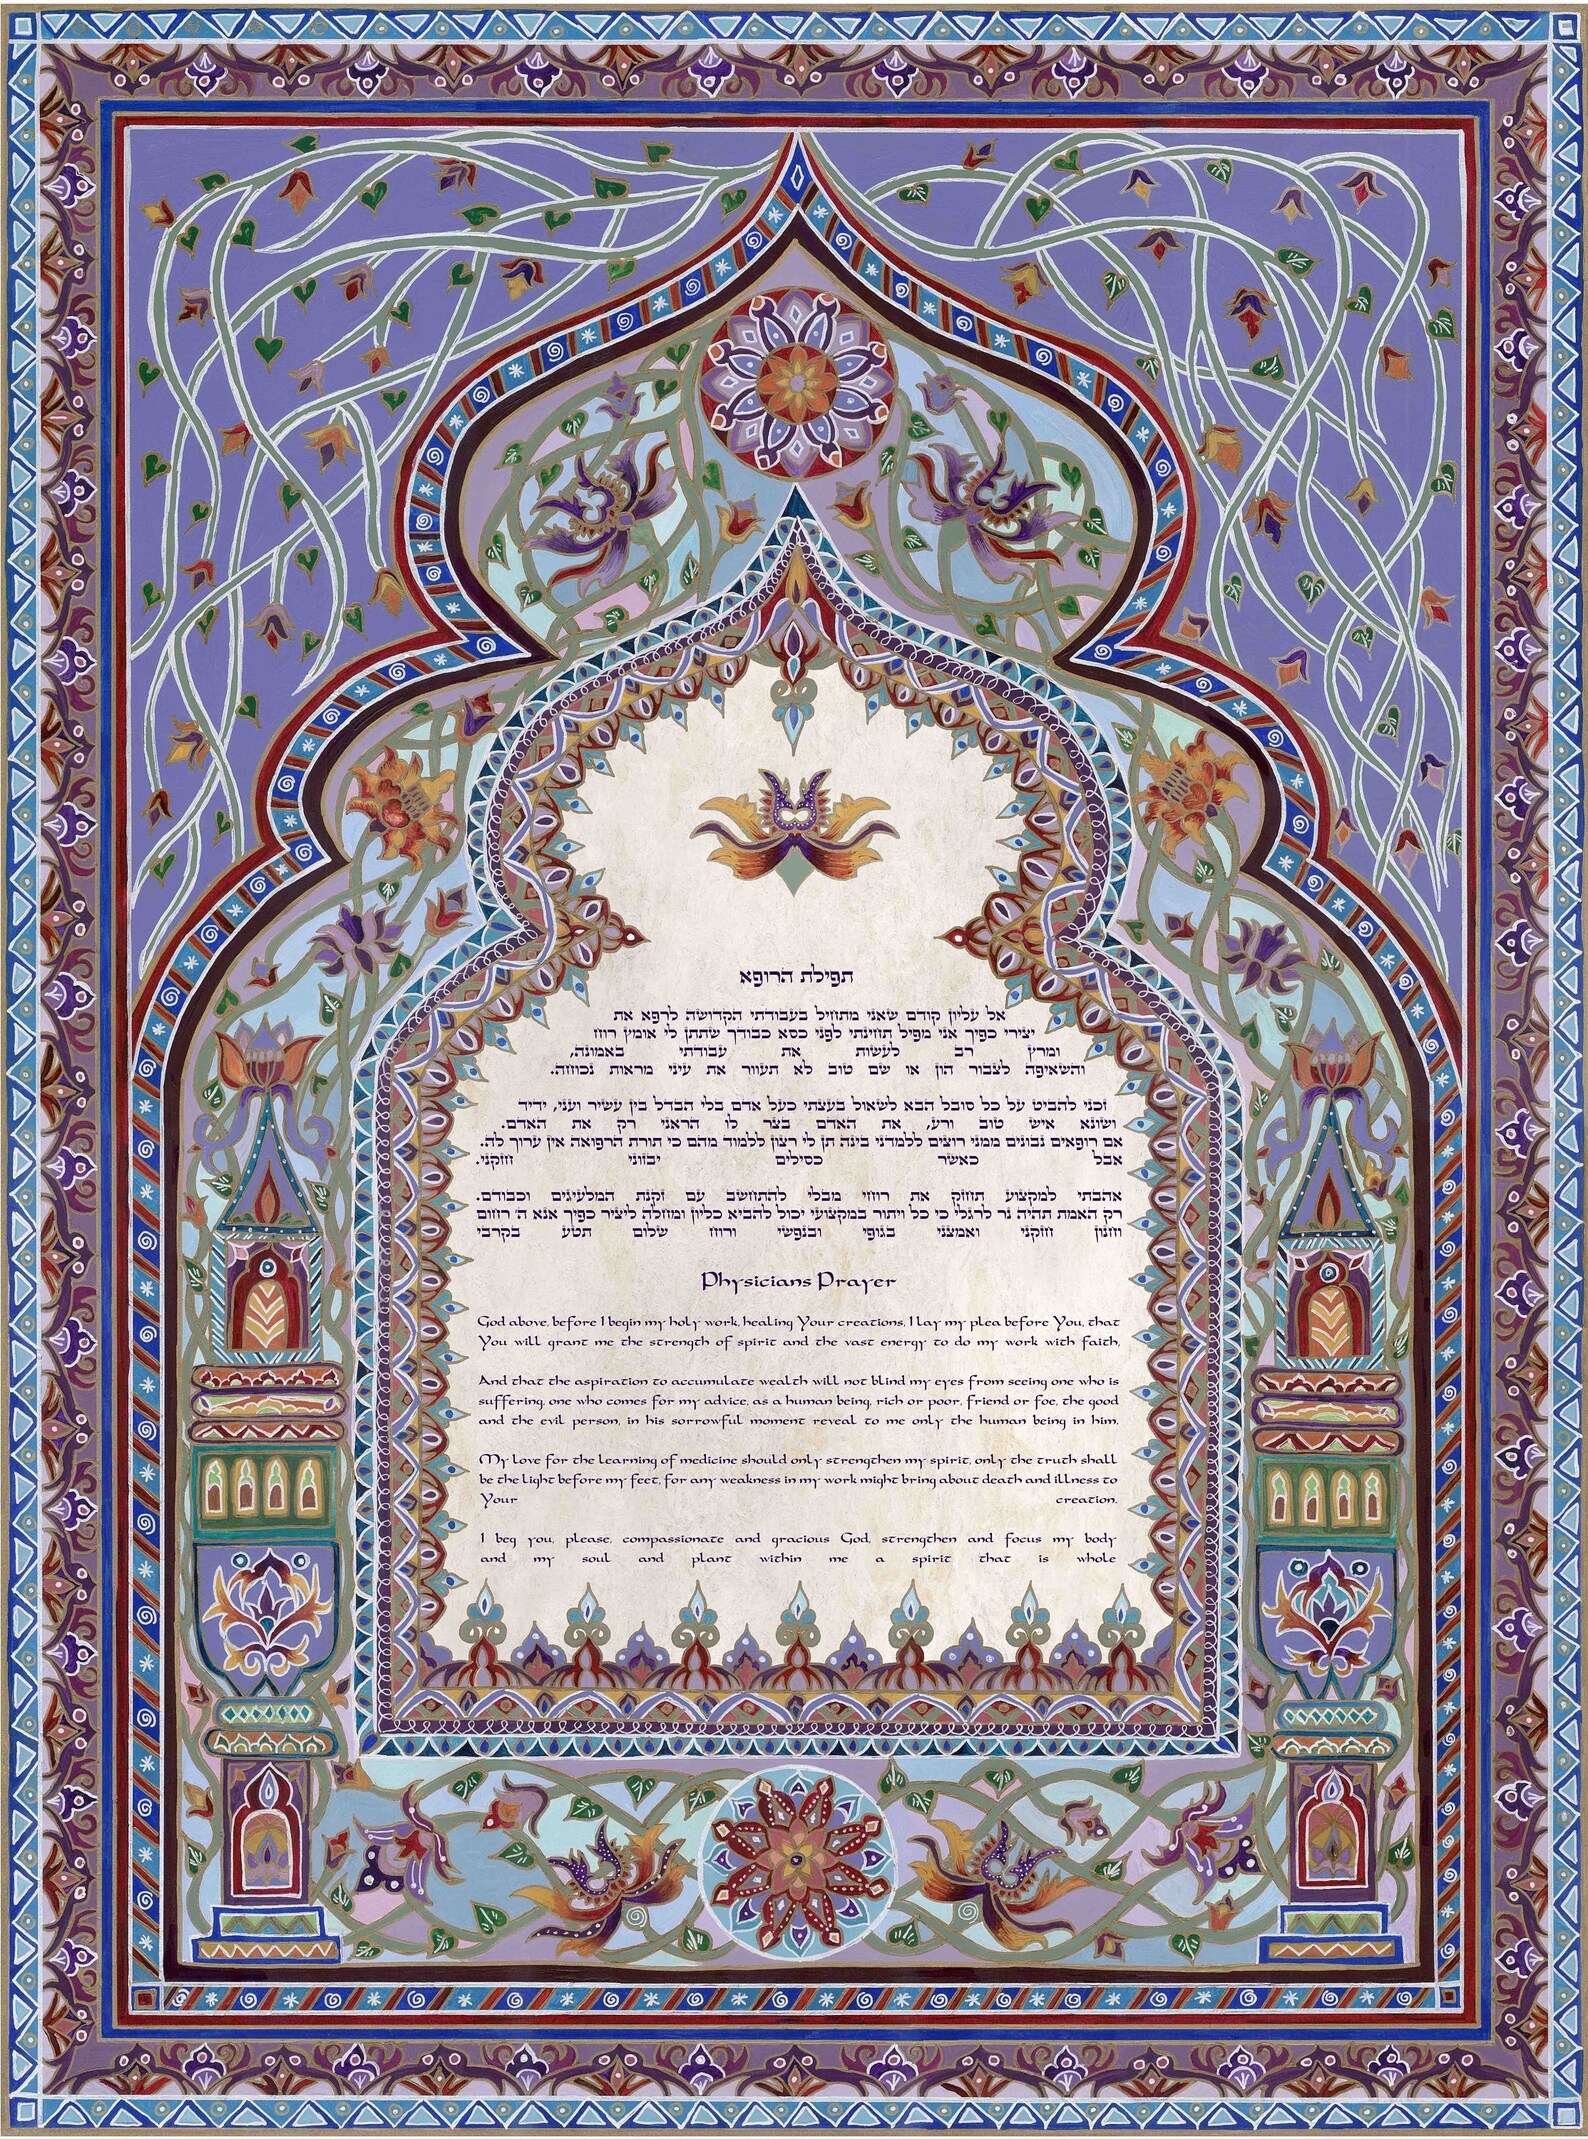 תפילת הרופא
אל עליון קודם שאני מתחיל בעבודתי הקדושה לרפא את
יצירי כפיך אני מפיל תחינתי לפני כסא כבודך שתתן לי אומץ רוח
ומרץ רב לעשות את עבודתי באמונה,
והשאיפה לצבור הון או שם טוב לא תעוור את עיני מראות נכוחה.
זכני להביט על כל סובל הבא לשאול בעצתי כעל אדם בלי הבדל בין עשיר ועני, ידיד
ושונא איש טוב ורע, את האדם בצר לו הראני רק את האדם.
אם רופאים נבונים ממני רוצים ללמדני בינה תן לי רצון ללמוד מהם כי תורת הרפואה אין ערוך לה.
אבל כאשר כסילים יבזוני חזקני.
אהבתי למקצוע תחזק את רוחי מבלי להתחשב עם זקנת המלעיגים וכבודם.
רק האמת תהיה נר לרגלי כי כל ויתור במקצועי יכול להביא כליון ומחלה ליציר כפיך אנא ה' רחום
וחנון חזקני ואמצני בגופי ובנפשי ורוח שלום תטע בקרבי
Physicians Prayer
God above, before I begin my holy work, healing Your creations, I lay my plea before You, that
You will grant me the strength of spirit and the vast energy to do my work with faith,
And that the aspiration to accumulate wealth will not blind my eyes from seeing one who is
suffering, one who comes for my advice, as a human being, rich or poor, friend or foe, the good
and the evil person, in his sorrowful moment reveal to me only the human being in him.
My love for the learning of medicine should only strengthen my spirit, only the truth shall
be the light before my feet, for any weakness in my work might bring about death and illness to
Your creation.
I beg you, please, compassionate and gracious God, strengthen and focus my body
and my soul and plant within me a spirit that is whole